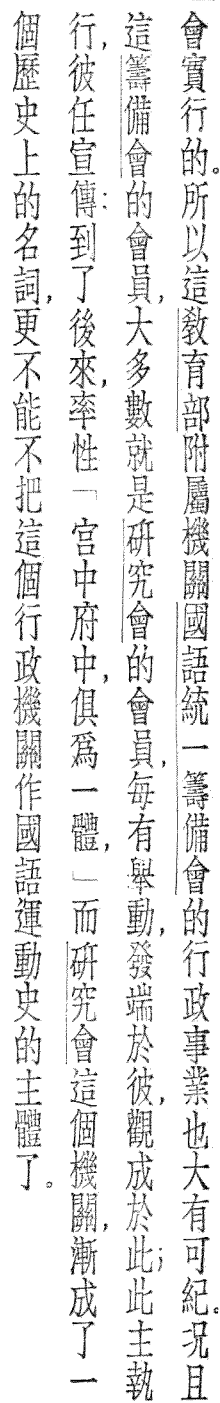 會實行的。所以這教育部附屬機關國語統一籌備會的行政事業也大有可紀。況且
這籌備會的會員，大多數就是研究會的會員，每有舉動，發端於彼，觀成於此；此主執
行，彼任宣傳：到了後來，率性「宮中府中，俱爲一體，」而研究會這個機關，漸成了一
個歷史上的名詞，更不能不把這個行政機關作國語運動史的主體了。